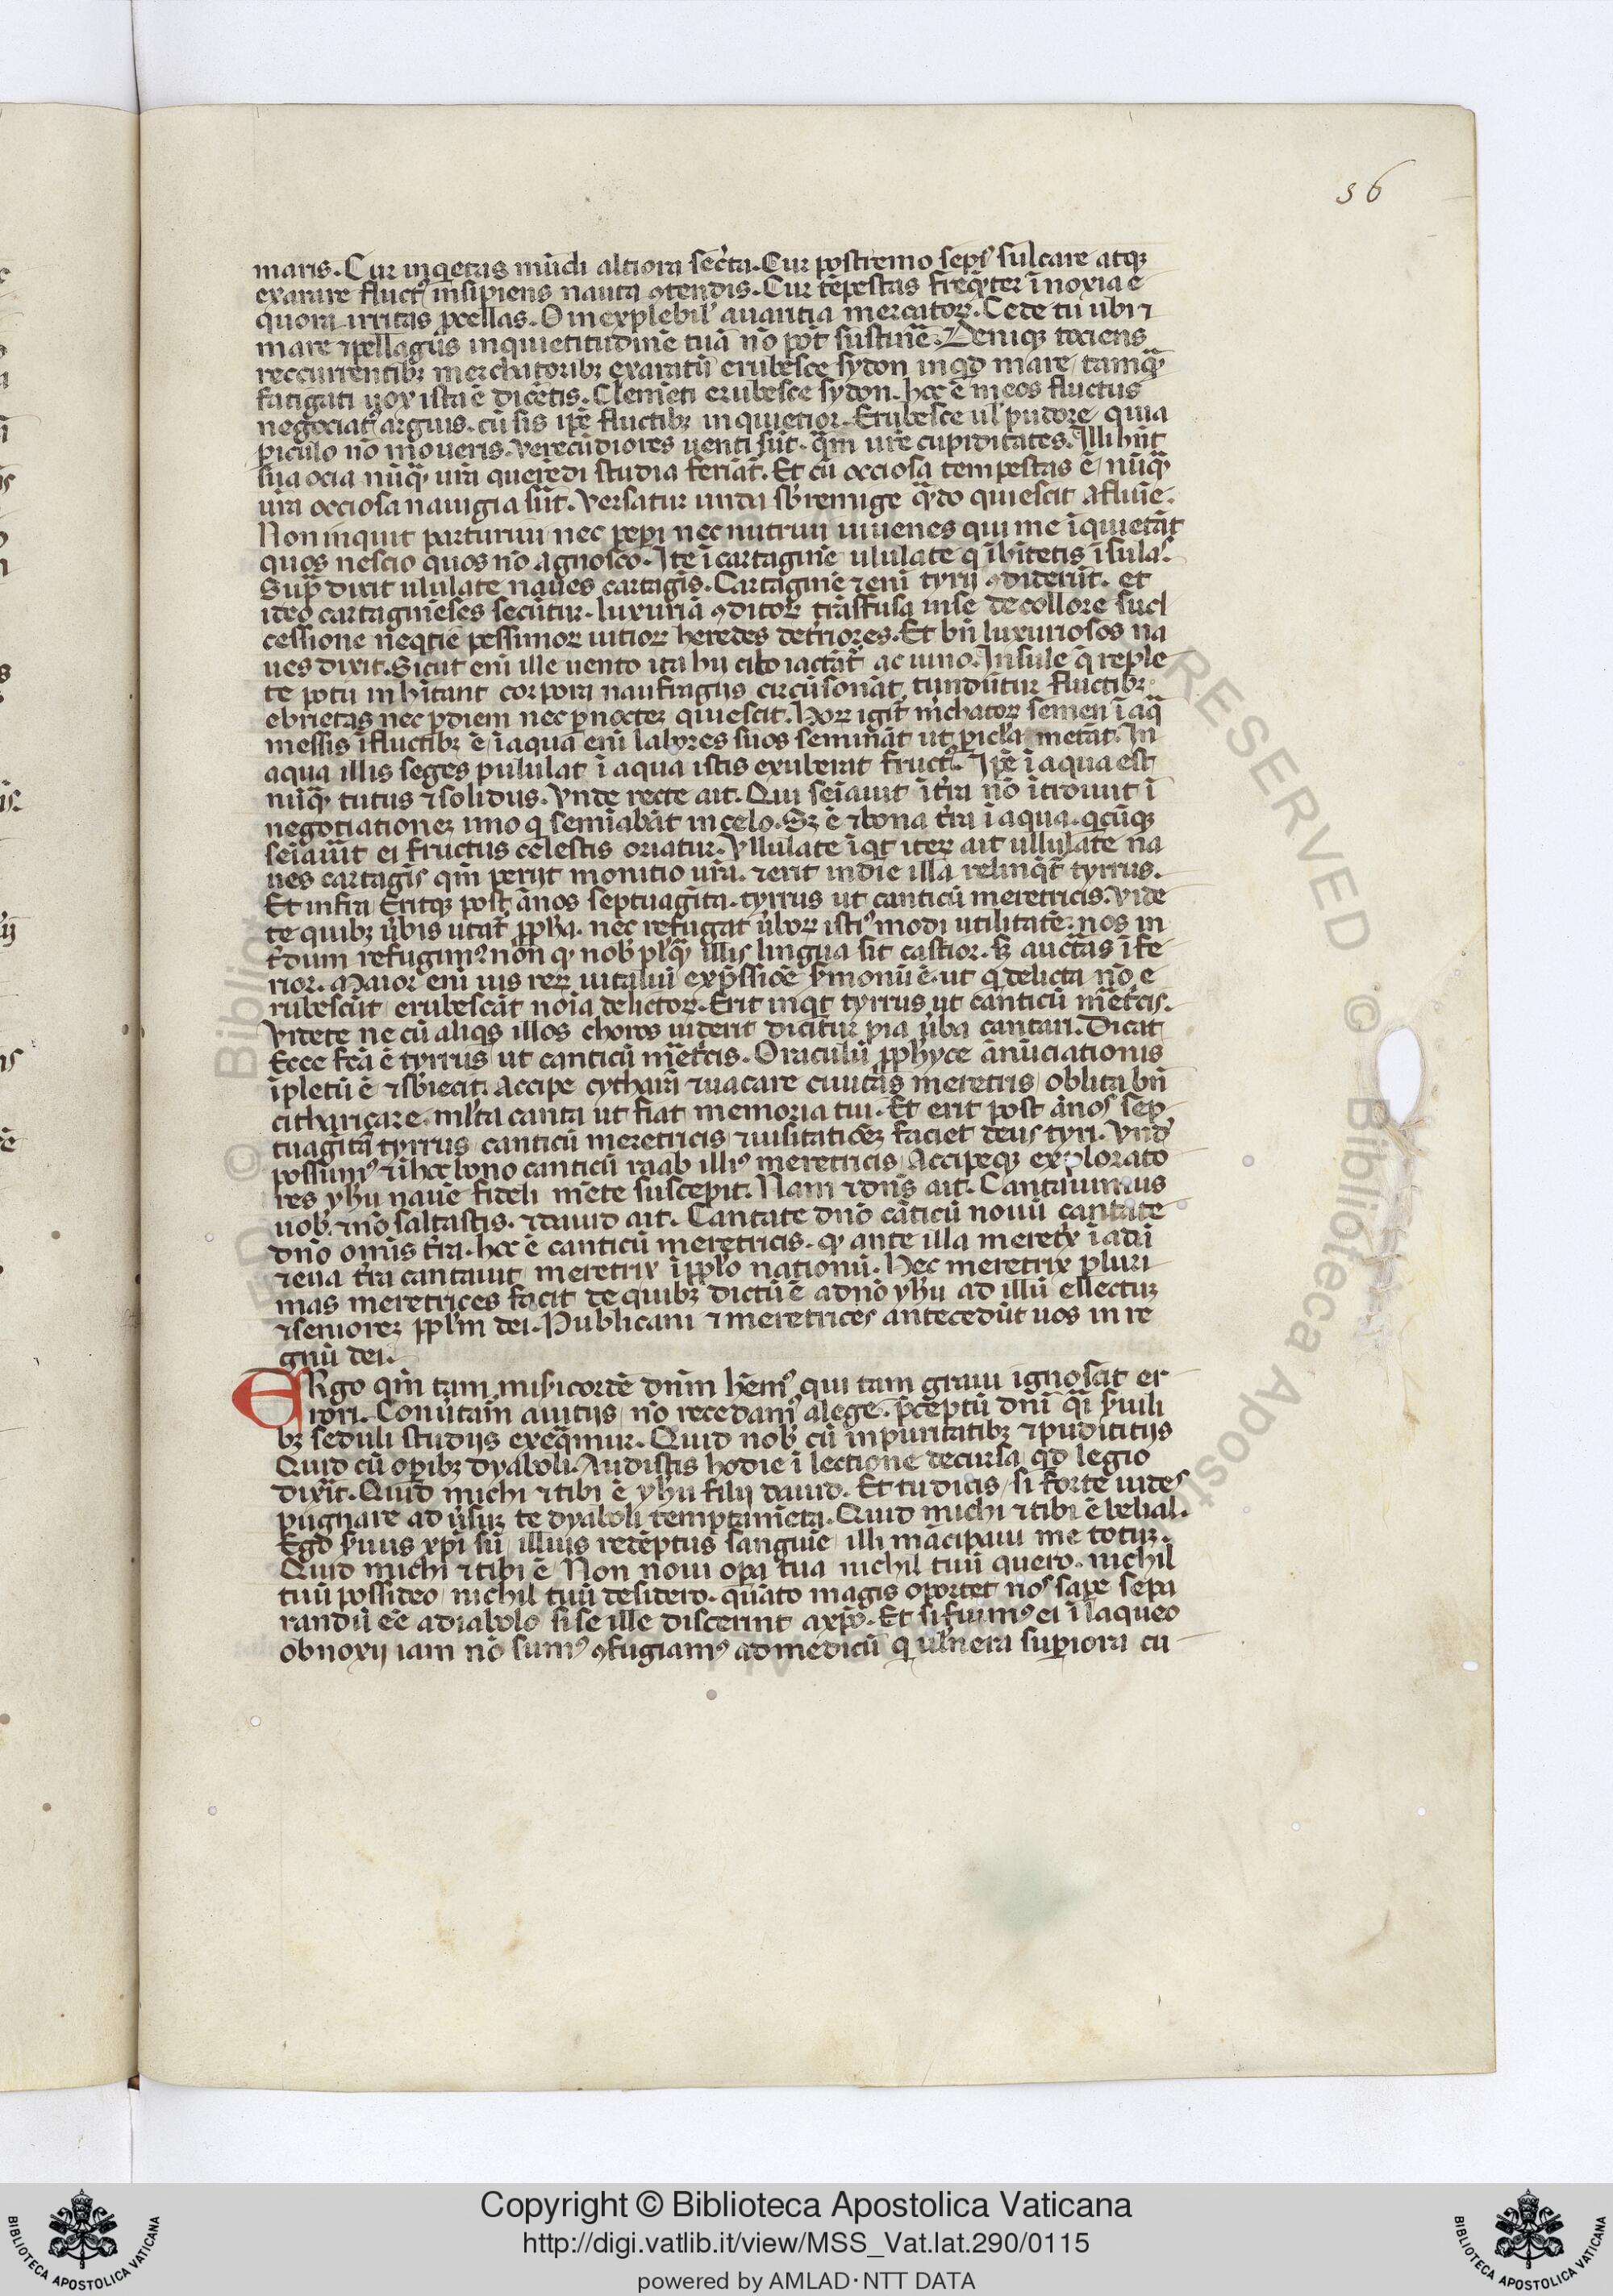 36
maris. Cur inq̇etas mūdi altiora sec̄ta. Cur postremo sepi᷒ sulcare atqꝫ
exarare fluctꝰ insipiens nauta ꝯtendis. Cur tēpestas freq̇ter īnoxia e
quora irritas ꝓcellas. O inexplebil᷒ auaritia mercatoꝝ. Cede tu ubi ⁊
mare ⁊ pellagus inquietitudinē tuā nō pōt sustinē. Deniqꝫ tociens
reccurrentibꝫ merchatoribꝫ exaratū erubesce sydon inqd̄ mare tamq̄ᷓ
fatigati uox ista ē dicētis. Clemēti erubesce sydon. hoc ē meos fluctus
negociatꝰ arguis. cū sis ip̄e fluctibꝫ inquietior. Erubesce ul᷒ pudore quia
ꝑiculo nō moueris. Verecūdiores uenti sūt. q̄m ur̄e cupiditates. Illi hn̄t
sua ocia nūq̄ ur̄a querēdi studia feriāt. Et cū occiosa tempestas ē nūq̄
ur̄a occiosa nauigia sūt. Versatur unda sb̄ remige qn̄do quiescit a flaīe.
Non inquit parturiui nec peperi nec nutriui iuuenes qui me īquietāt
quos nescio quos nō agnosco. Ite ī cartaginē ululate q̇ īhitetis īsulas.
Supᷓ dixit ululate naues cartagīs. Cartaginē ⁊eni tyrij ꝯdiderūt. et
ideo cartagineses secūtur. luxuriā ꝯditoꝝ trāsfusa in se de collore sucl
cessione neqtie pessimoꝝ uitioꝝ heredes detriores. Et bn̄ luxuriosos na
ues dixit. Sicut eni ille uento ita hii cibo iactāt᷒ ac uino. Insule q̄ reple
te potu inhītant corpora naufragijs circūsonāt tundūtur fluctibꝫ
ebrietas nec ꝑ diem nec ꝑ noctez quiescit. Hoꝝ igit᷒ m̄chatoꝝ semen ī aq̄
messis ī fluctibꝫ ē ī aqua eni labores suos seminā̄t ut ꝑicl᷒a metāt. In
aqua illis seges pululat ī aqua istis exuberat fructꝰ. Ip̄e ī aqua est
nūq̄ tutus ⁊ solidus. Vnde recte ait. Qui seīauit ī tr̄a nō ītroiuit ī
negotiationez imo q̇ semīabāt in celo. Sꝫ ē ⁊ bona tr̄a ī aqua. qcūqꝫ
seīaūit ei fructus celestis oriatur. Vllulate īqt itez ait ullulate na
ues cartagīs qm̄ perijt monitio ur̄a. ⁊ erit in die illa relinqt᷒ tyrrus.
Et infra. Eritqꝫ post ānos septuagīta. tyrrus ut canticū meretricis. Vide
te quibꝫ ūbis utat᷒ ꝓph̄a. nec refugat ūboꝝ istiꝰ modi utilitatē. nos in
t᷒dum refugimꝰ non qꝫ nob᷒ plꝰq̄ illis lingua sit castior. sꝫ auct̄as īfe
rior. Maior eni uis reꝝ uitalui exp̄ssiōe s᷒monū ē. ut q̇ delicta nō e
rubescūt erubescāt noīa delictoꝝ. Erit inqt tyrrus ut canticū m̄et᷒cis.
Videte ne cū aliqs illos choros uiderit dicitur pia ūba cantari. Dicat
Ecce fc̄a ē tyrrus ut canticū m̄et᷒cis. Oraculū ꝓph̄yce ānūciationis
īpletū ē ⁊ sb̄iecit. Accipe cytharā ⁊ uacare ciuitās meretris oblita bn̄
citharicare. ml᷒ta canta ut fiat memoria tui. Et erit post ānos sep
tuagītᷓ tyrrus canticū meretricis ⁊ uisitatiōez faciet deus tyri. Vnd̄
possumꝰ ⁊ ī hoc bono canticū raab illiꝰ meretricis. Accipeqꝫ explorato
res yh̄u nauē fideli mēte suscepit. Nam ⁊ dn̄s ait. Cantauimus
uob᷒ ⁊ nō saltastis. ⁊ dauid ait. Cantate dn̄o cāticū nouū cantate
dn̄o omīs tr̄a. hoc ē canticū meretricis. qꝫ ante illa meret᷒x ī adā
⁊ eua tr̄a cantauit meretrix ī ppl᷒o nationū. Hec meretrix pluri
mas meretrices facit de quibꝫ dictū ē a dn̄o yh̄u ad illū ellectuꝫ
⁊ seniorez ppl᷒m dei. Publicani ⁊ meretrices antecedūt uos in re
gnū dei.
ERgo qm̄ tam misicordē dn̄m hēmꝰ qui tam graui ignoscat er
rori. Conūtam̄ a uitijs nō recedamꝰ a lege. p̄ceptū dn̄i q̄i s᷒uili
bꝫ seduli studijs exeq̄mur. Quid nob᷒ cū inpuritatibꝫ ⁊ pudititijs
Quid cū oꝑibꝫ dyaboli. Audistis hodie ī lectione decursa qd̄ legio
dixit. Quid michi ⁊ tibi ē yh̄u filij dauid. Et tu dicis si forte uides
pugnare aduūsuꝫ te dyaboli temptamēta. Quid michi ⁊ tibi ē belial.
Ego s᷒uus xp̄i sū illius redēptus sanguīe illi mācipaui me totuꝫ.
Quid michi ⁊ tibi ē. Non noui oꝑa tua nichil tuū quero. nichil
tuū possideo nichil tuū desidero. quāto magis oportet nos sape sepa
randū eē a diabolo si se ille discernit a xp̄o. Et si fuimꝰ ei ī laqueo
obnoxij iam nō sumꝰ ꝯfugiamꝰ ad medicū q̇ uln̄era superiora cu
Copyright © Biblioteca Apostolica Vaticana
http://digi.vatlib.it/view/MSS_Vat.lat.290/0115
powered by AMLAD·NTT DATA